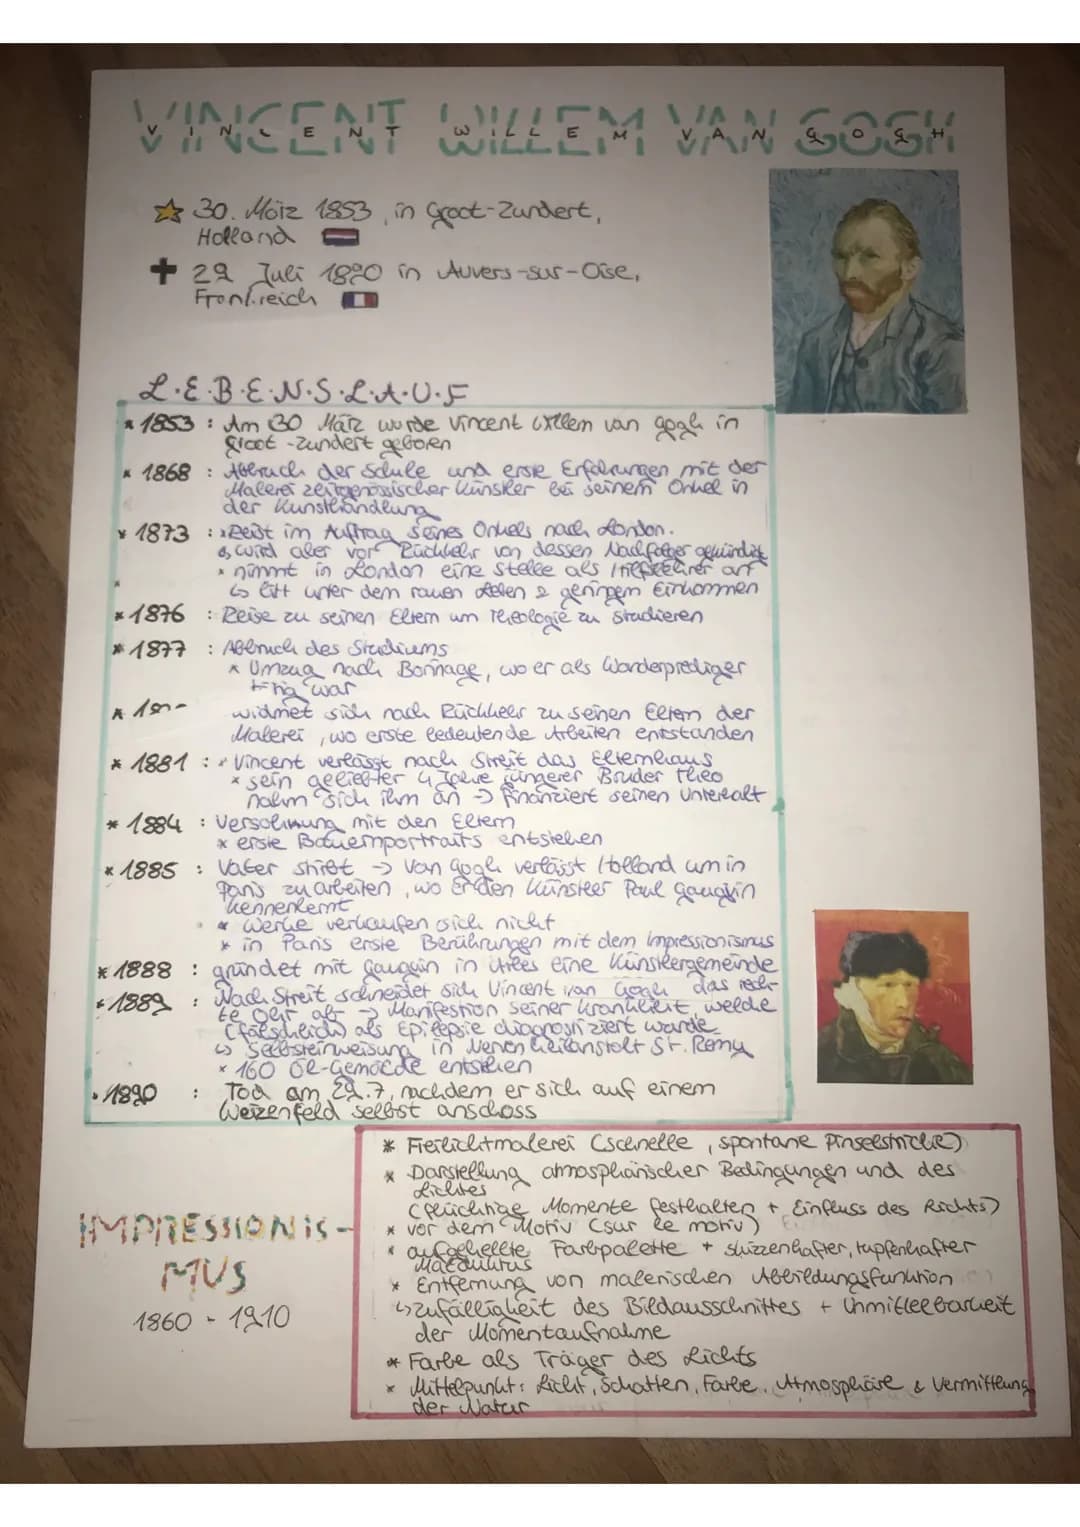 VINCENT WILLEM VAN GOGH
30. März 1853, in Groot-Zundert,
Holland
29 Juli 1890 in Auvers-sur-Oise,
Frankreich
L.E.B.E.N.S.L.A.U.F
* 1853 : Am 30 März wurde Vincent Willem van gogh in
Groot-Zundert geboren
* 1868 : Abbruch der Schule und erste Erfahrungen mit der
Malerei zeitgenössischer Künstler bei seinem Onkel in
der Kunsthandlung
* 1873 : * Reist im Auftrag seines Onkels nach London.
↳ wird aber vor Rückkehr von dessen Nachfolger gekündigt
* nimmt in London eine Stelle als Hilfslehrer an
↳ litt unter dem rauen & geringem Einkommen
* 1876 : Reise zu seinen Eltern um Theologie zu studieren
* 1877 : Abbruch des Studiums
* Umzug nach Borinage, wo er als Wanderprediger
tätig war
* widmet sich nach Rückkehr zu seinen Eltern der
Malerei, wo erste bedeutende Arbeiten entstanden
* 1881 : * Vincent verlässt nach Streit das Elternhaus
* sein geliebter 4 Jahre jüngerer Bruder Theo
nahm sich ihm an -> finanziert seinen Unterhalt
* 1884 : Versöhnung mit den Eltern
* erste Bauernportraits entstehen
* 1885 : Vater stirbt -> Van Gogh verlässt Holland um in
Paris zu arbeiten, wo er den Künstler Paul Gauguin
kennenlernt
* Werke verkaufen sich nicht
* in Paris erste Berührungen mit dem Impressionismus
* 1888 : gründet mit Gauguin in Arles eine Künstlergemeinde
* 1889 : Nach Streit schneidet sich Vincent van Gogh das rech-
te Ohr ab -> Manifestion seiner Krankheit, welche
(fälschlich) als Epilepsie diagnostiziert wurde
↳ Selbsteinweisung in Nervenheilanstalt St. Remy
* 160 Öl-Gemälde entstehen
* 1890 : Tod am 29.7, nachdem er sich auf einem
Weizenfeld selbst anschoss
IMPRESSIONIS-
MUS
1860 - 1910
* Freilichtmalerei (schnelle, spontane Pinselstriche)
* Darstellung atmosphärischer Bedingungen und des
Lichtes
(flüchtige Momente festhalten + Einfluss des Lichts)
* vor dem Motiv (sur le motiv)
* aufgehellte Farbpalette + skizzenhafter, tupfenhafter
Malduktus
* Entfernung von malerischen Abbildungsfunktion
↳ zufälligkeit des Bildausschnittes + Unmittelbarkeit
der Momentaufnahme
* Farbe als Träger des Lichts
* Mittelpunkt: Licht, Schatten, Farbe, Atmosphäre & Vermittlung
der Natur